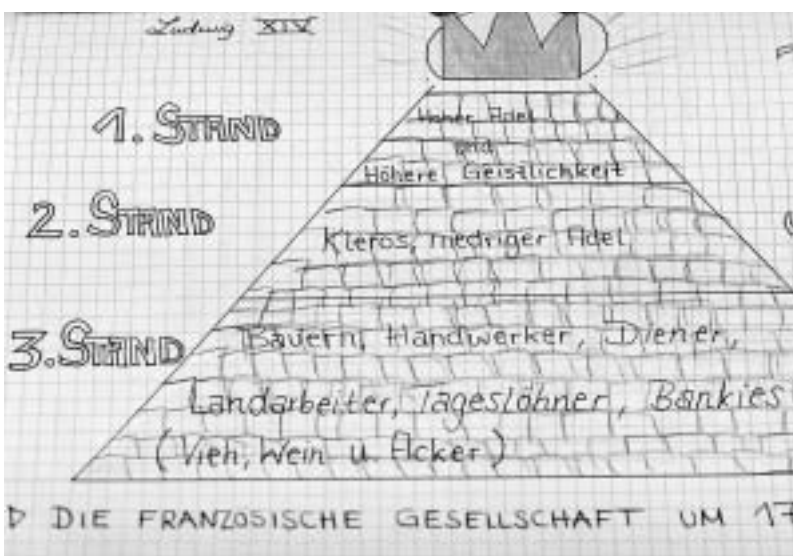 Ludwig XIV
1. STAND
Hoher Adel
und
Höhere Geistlichkeit
2. STAND
Kleros, niedriger Adel
3. STAND
Bauern, Handwerker, Diener,
Landarbeiter, Tageslöhner, Bankies
(Vieh, Wein u Acker)
D DIE FRANZÖSISCHE GESELLSCHAFT UM 17